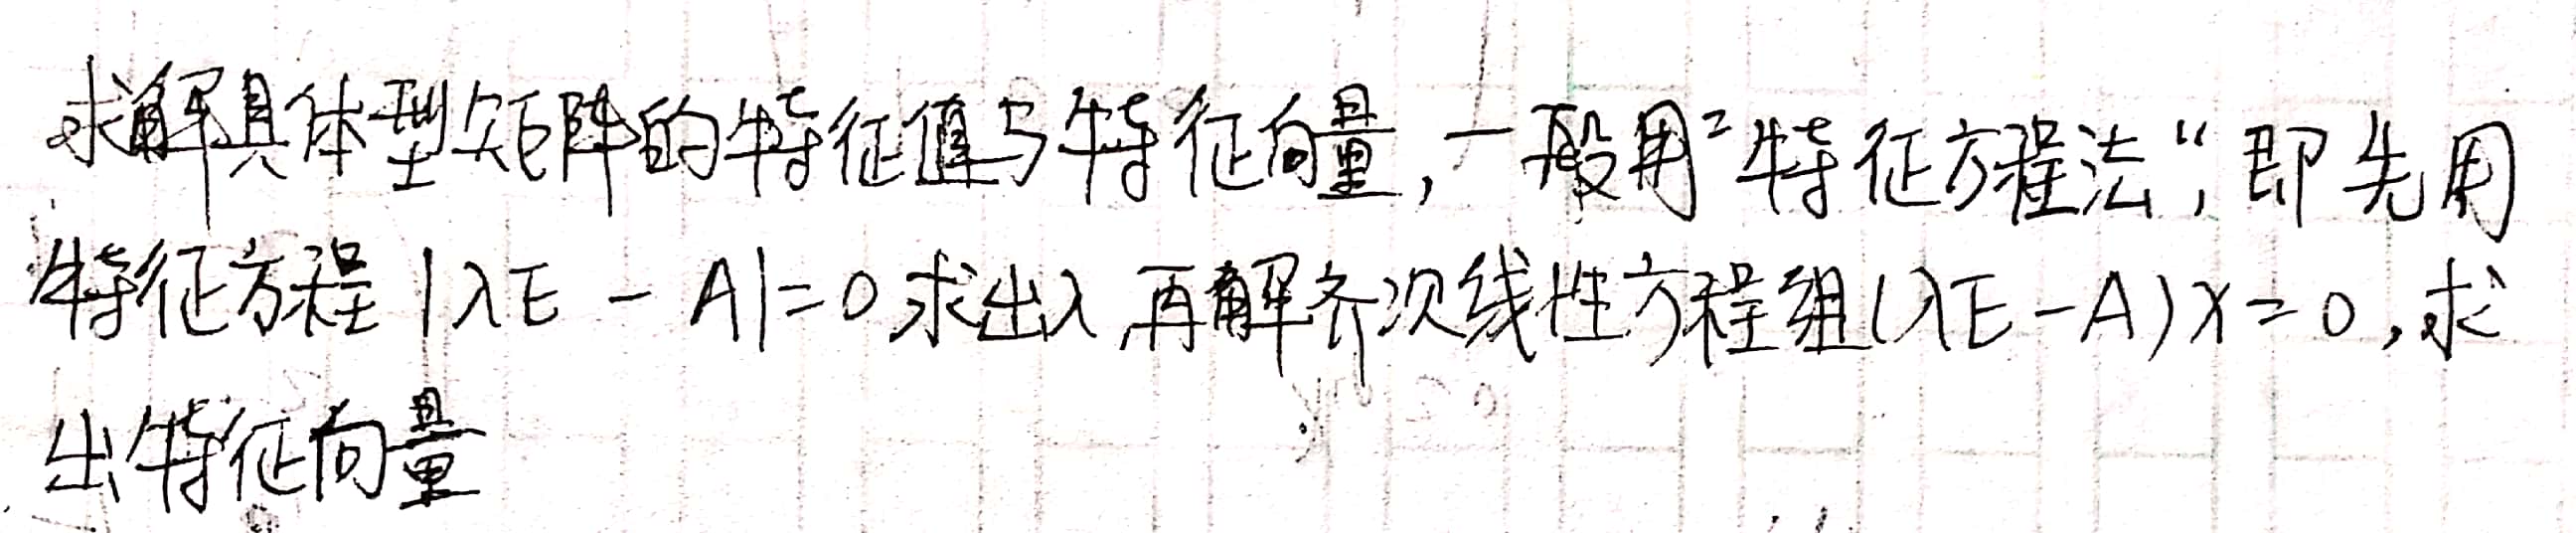 求解具体型矩阵的特征值与特征向量,一般用"特征方程法",即先用
特征方程|λE-A|=0求出λ,再解齐次线性方程组(λE-A)x=0,求
出特征向量